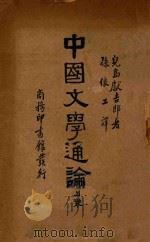 兒島獻吉郎著
孫俍工譯
中國文學通論
商務印書館發行